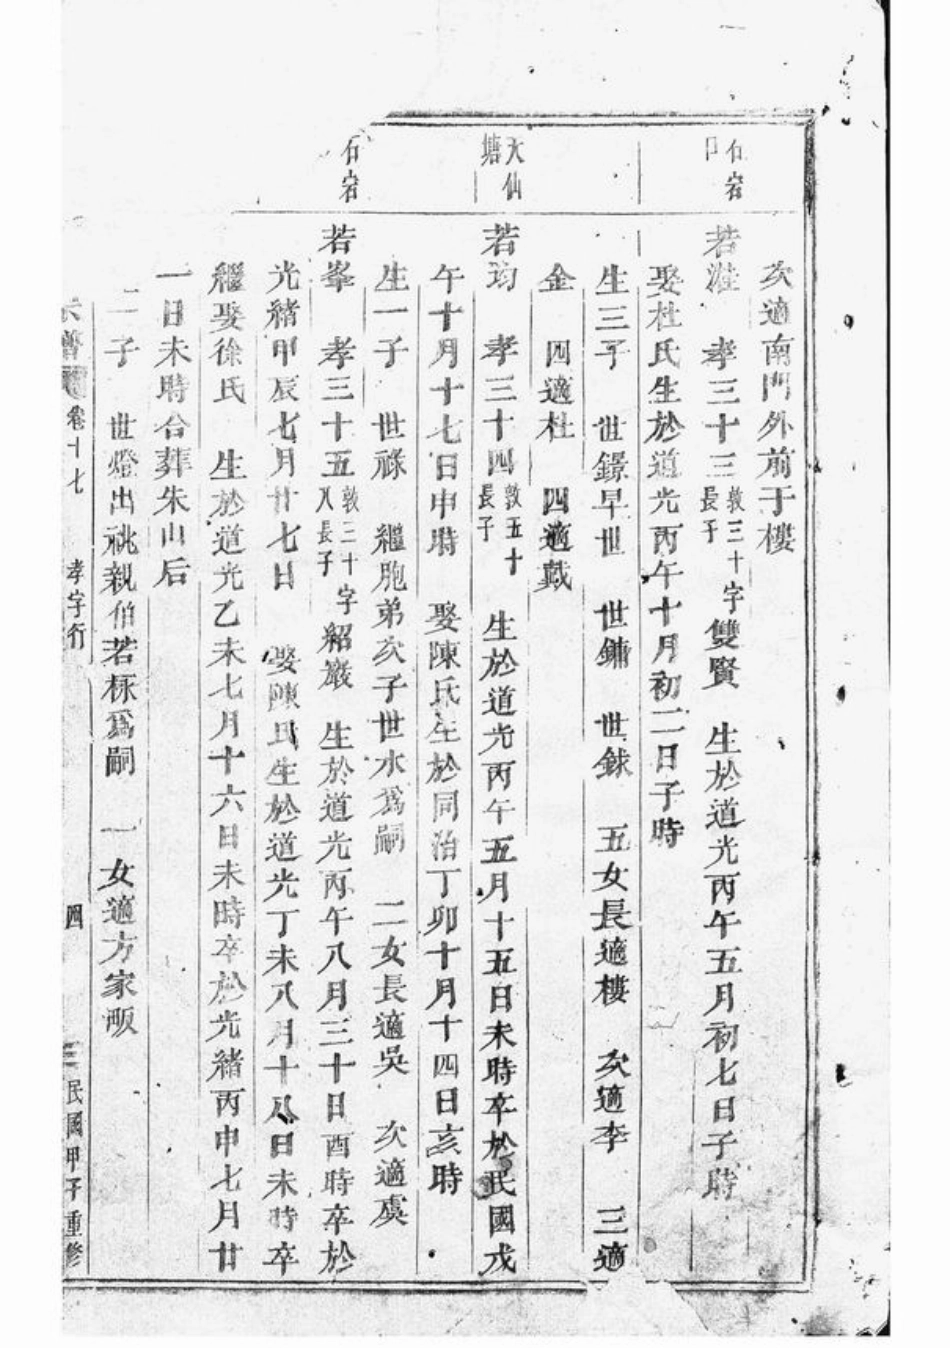 次適南門外前于樓
石宕
若溎 孝三十三 敦三十長子 字雙賢 生於道光丙午五月初七日子時
娶杜氏生於道光丙午十月初二日子時
生三子 世鐛早世 世鏞 世銶 五女長適樓 次適李 三適
金 四適杜 四適戴
大仙塘
若均 孝三十四 敦五十長子 生於道光丙午五月十五日未時卒於民國戊
午十月十七日申時 娶陳氏生於同治丁卯十月十四日亥時
生一子 世祿 繼胞弟次子世水為嗣 二女長適吳 次適虞
石宕
若峯 孝三十五 敦三十八長子 字紹巖 生於道光丙午八月三十日酉時卒於
光緒甲辰七月廿七日 娶陳氏生於道光丁未八月十八日未時卒
繼娶徐氏 生於道光乙未七月十六日未時卒於光緒丙申七月廿
一日未時合葬朱山后
二子 世燈出祧親伯若秝爲嗣 一女適方家畈
宗譜 卷十七 孝字行 四 民國甲子重修